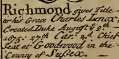 Richmond gives Title
to his Grace Charles Lenox,
Created Duke August 9th
1675. 27th Car. 2d Chief
Seat at Goodwood in the
County of Sussex.